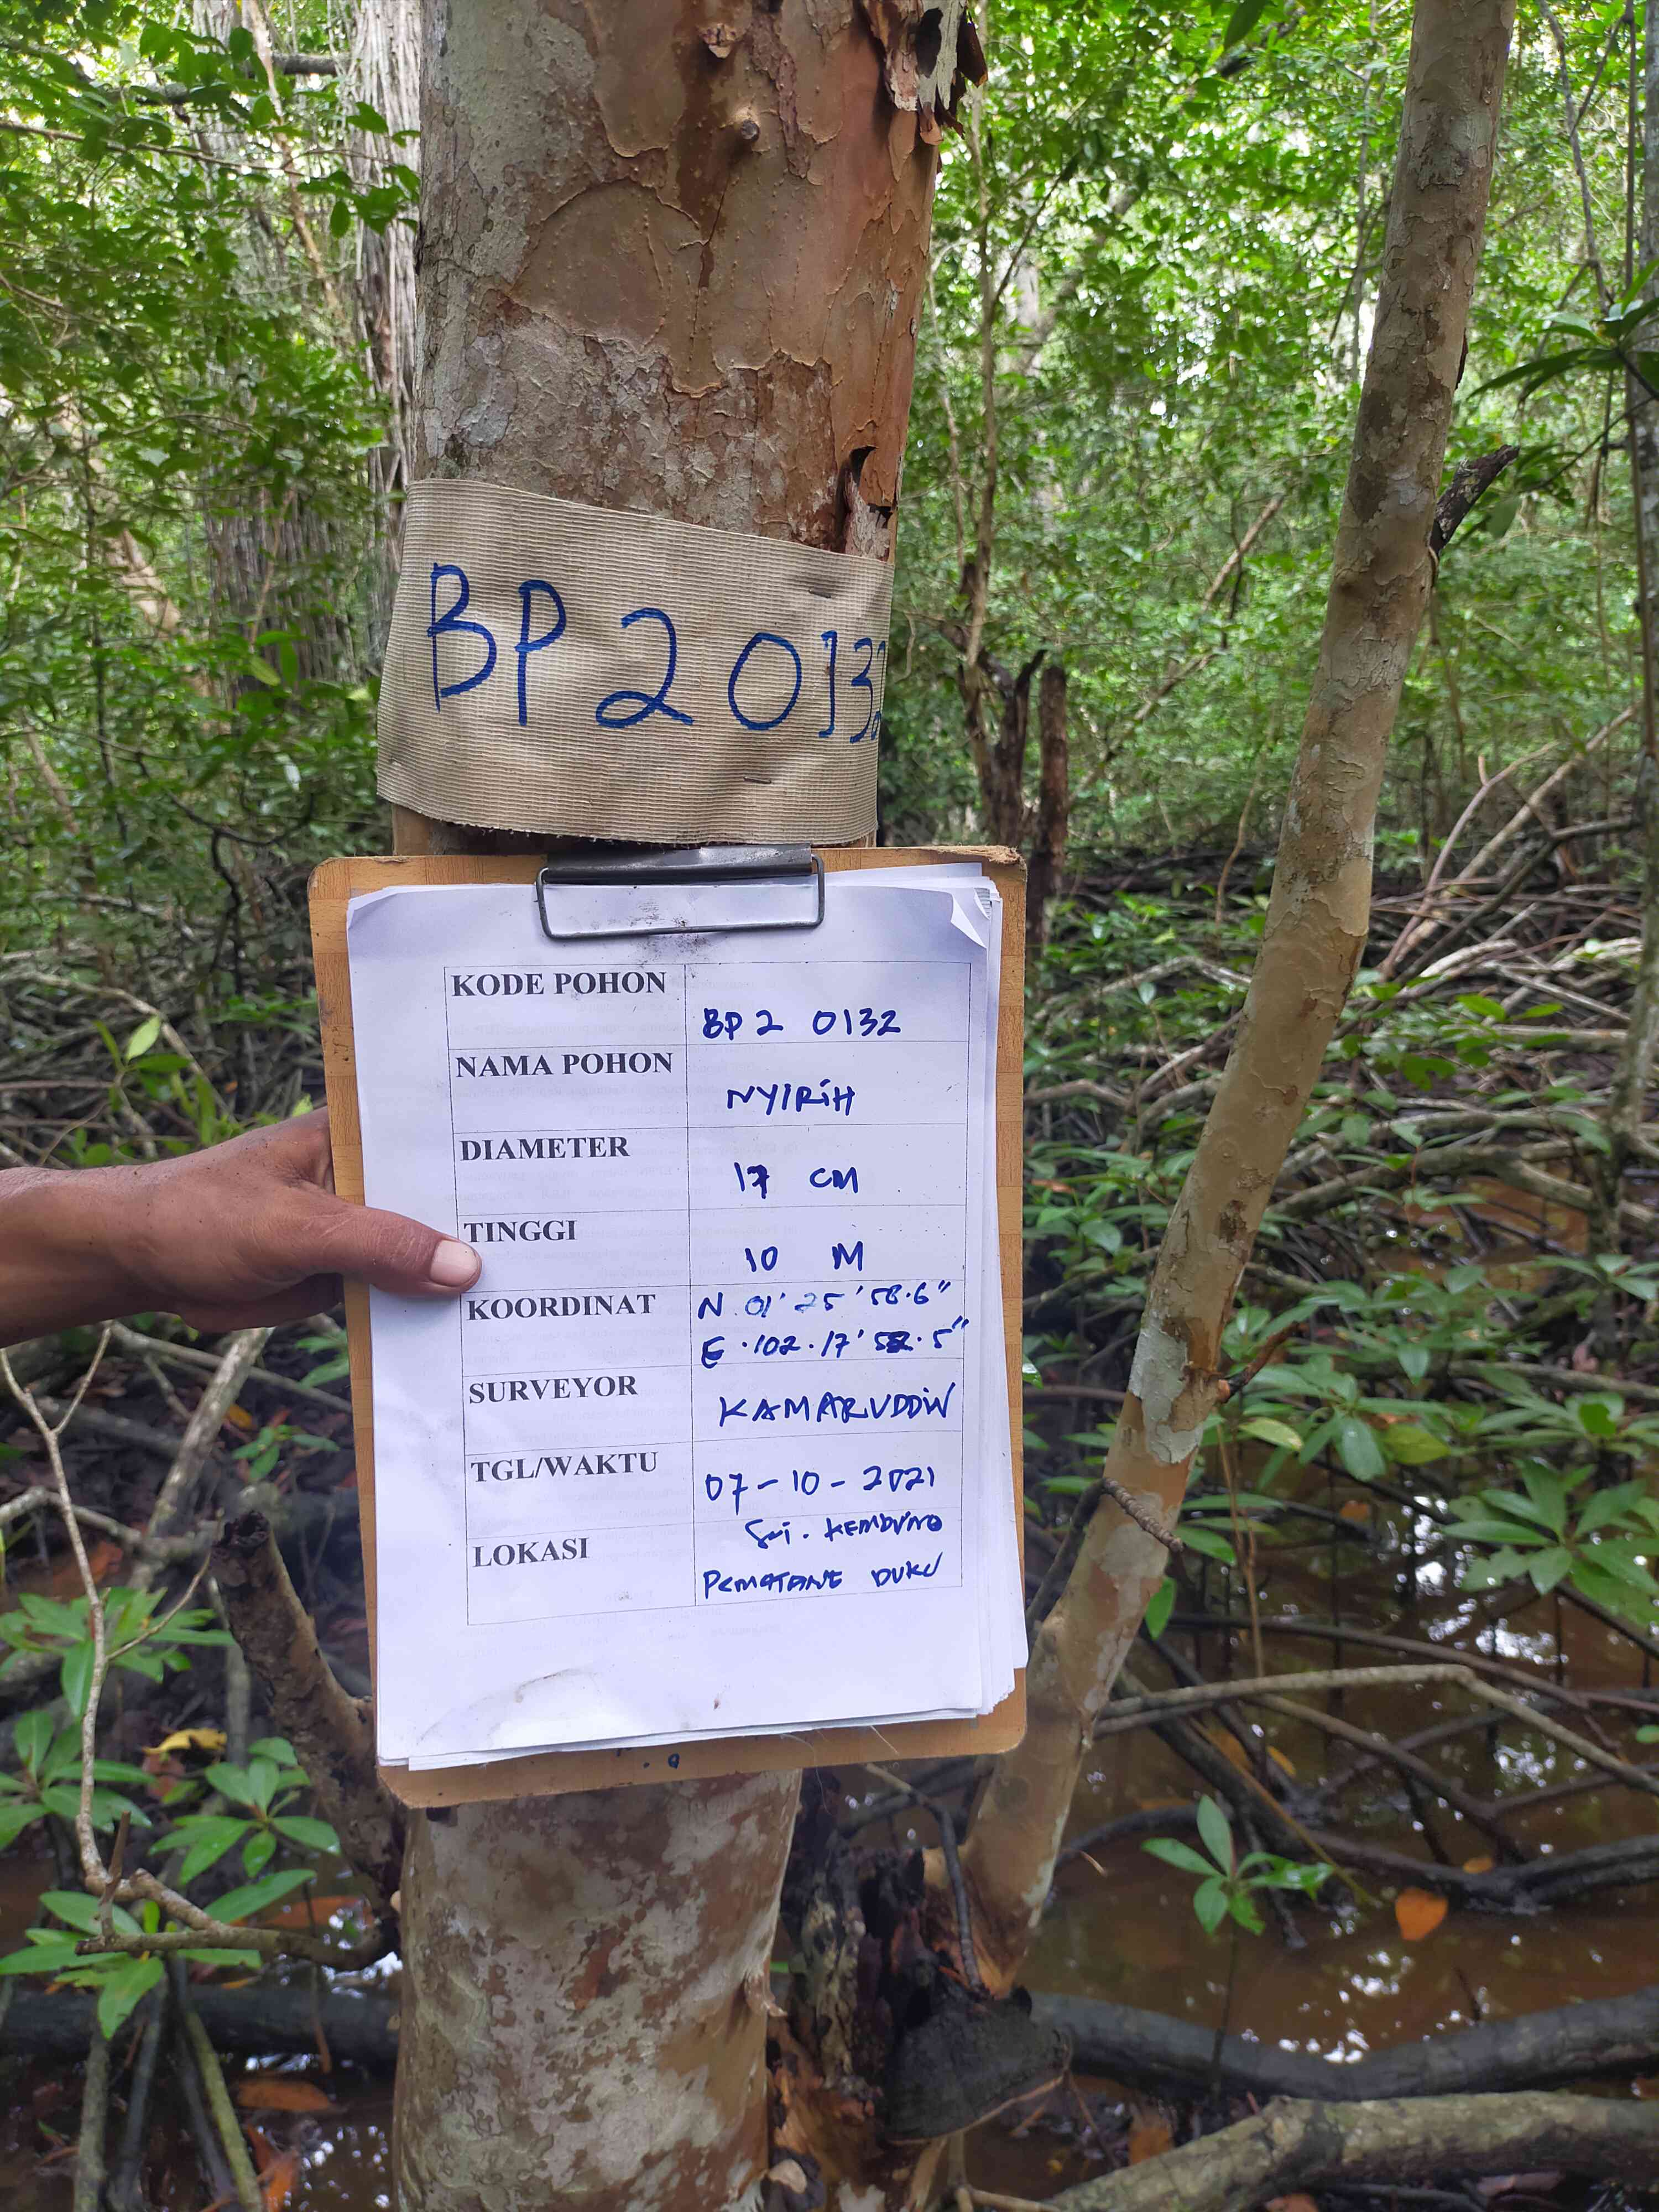 BP20132
KODE POHON
BP2 0132
NAMA POHON
NYIRiH
DIAMETER
17 CM
TINGGI
10 M
KOORDINAT
N. 01' 25' 58.6"
E .102.17' 52.5"
SURVEYOR
KAMARUDDiN
TGL/WAKTU
07-10-2021
LOKASI
Sei. KEMBUNG
PEMATANG DUKU